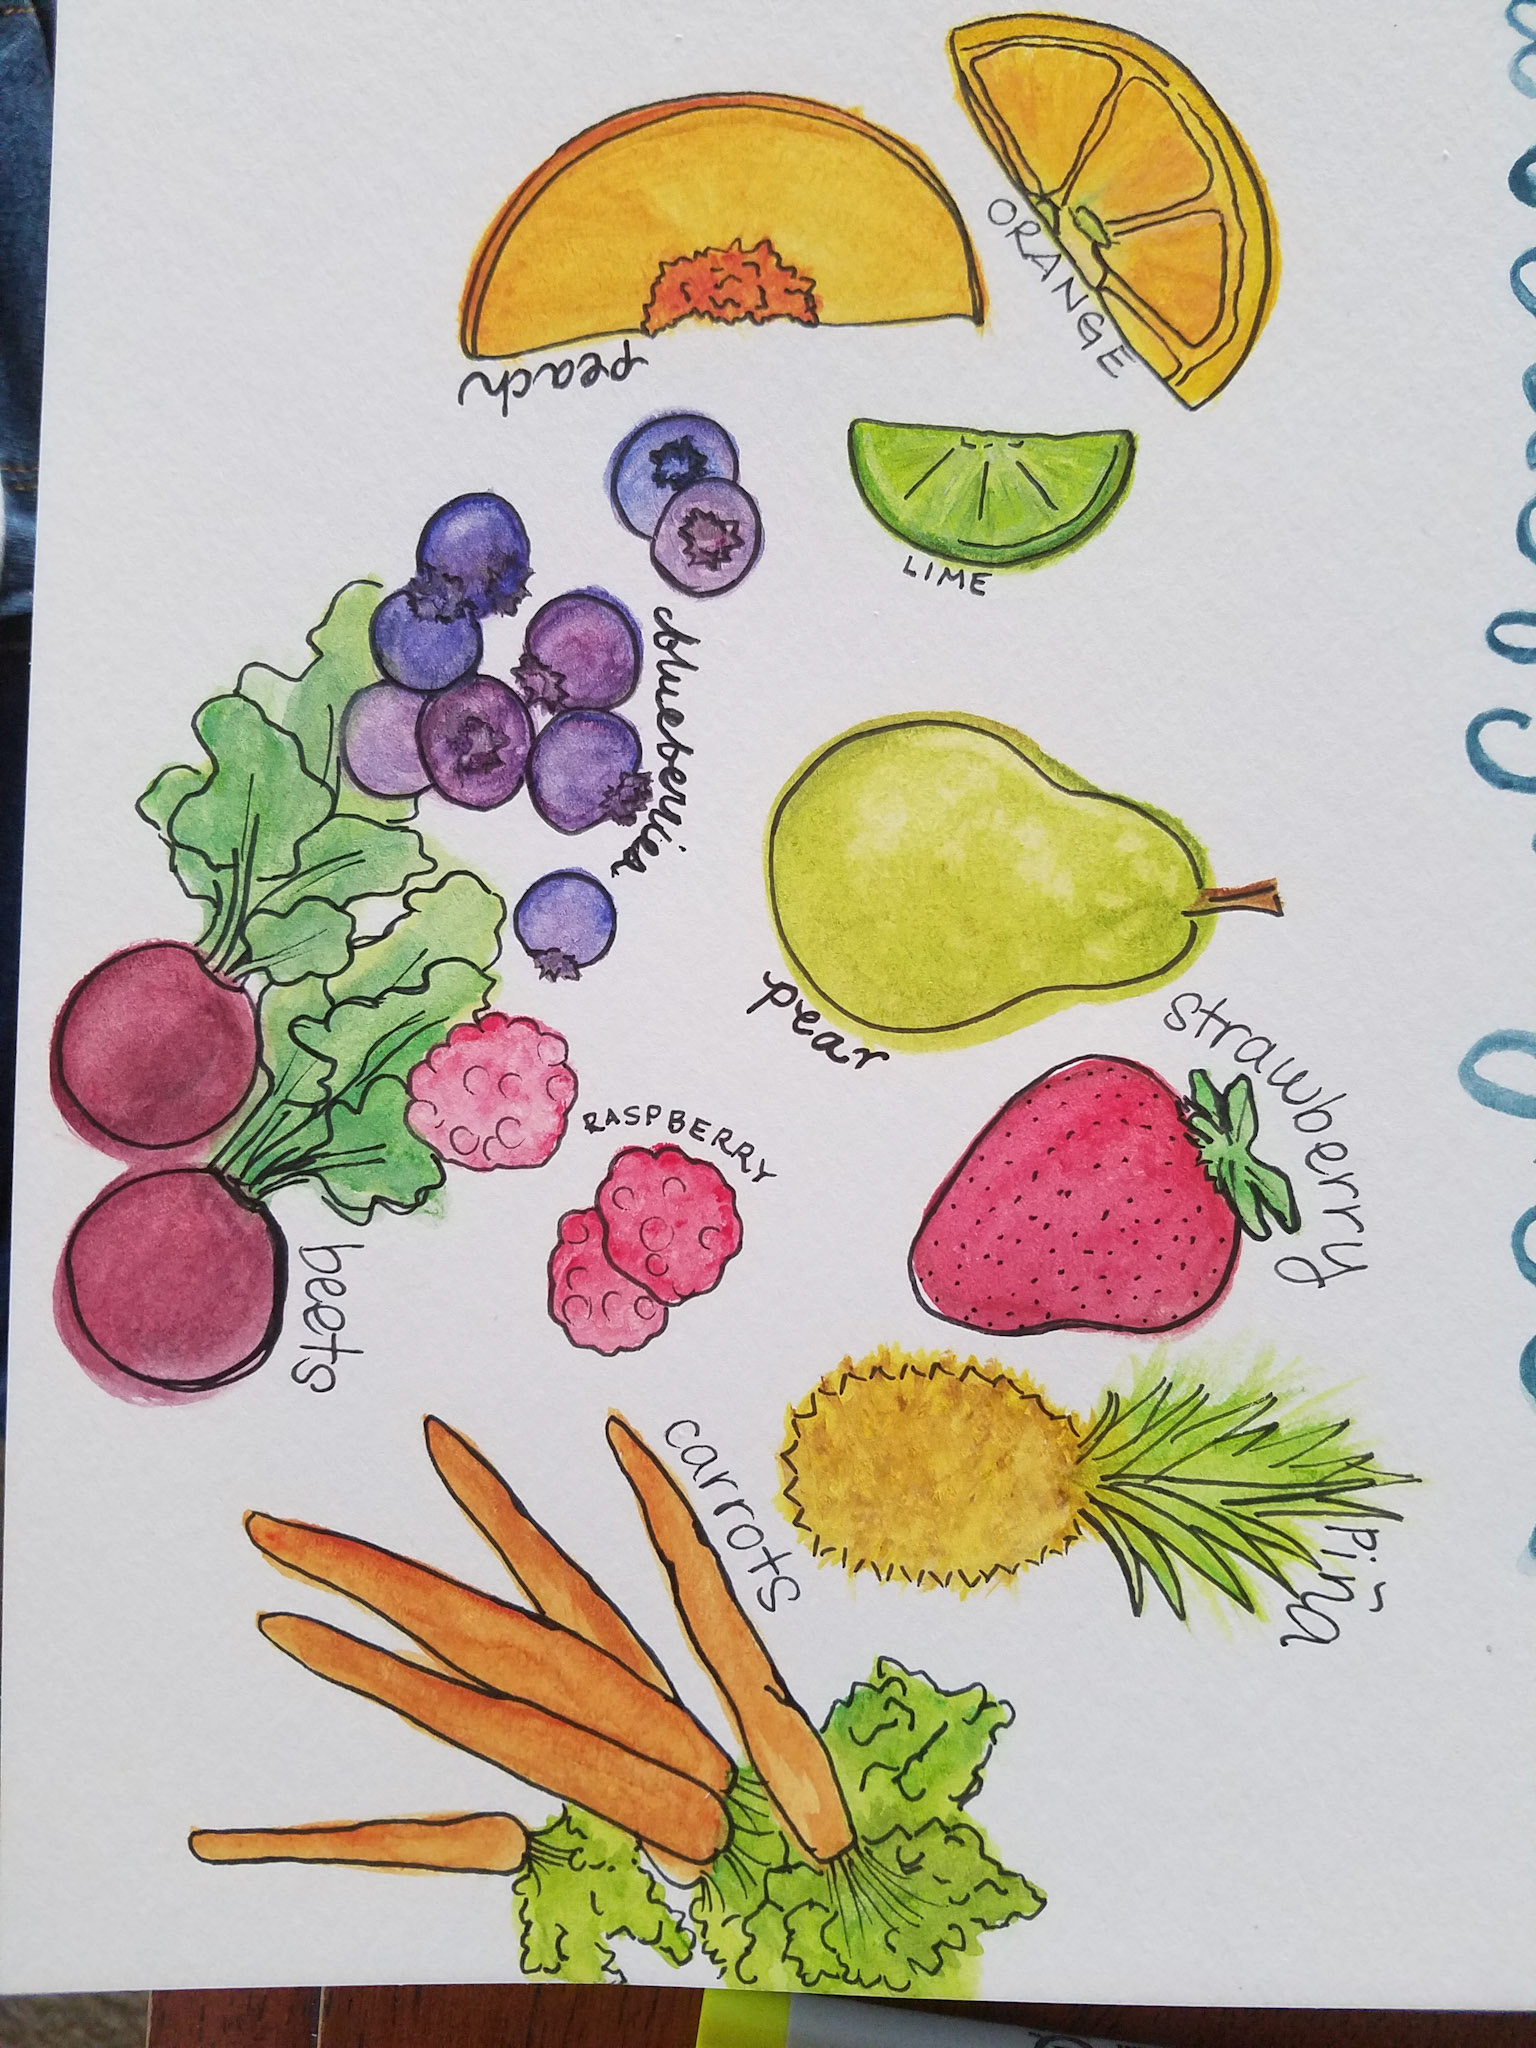 ORANGE
peach
LIME
blueberries
pear
strawberry
RASPBERRY
beets
carrots
piña